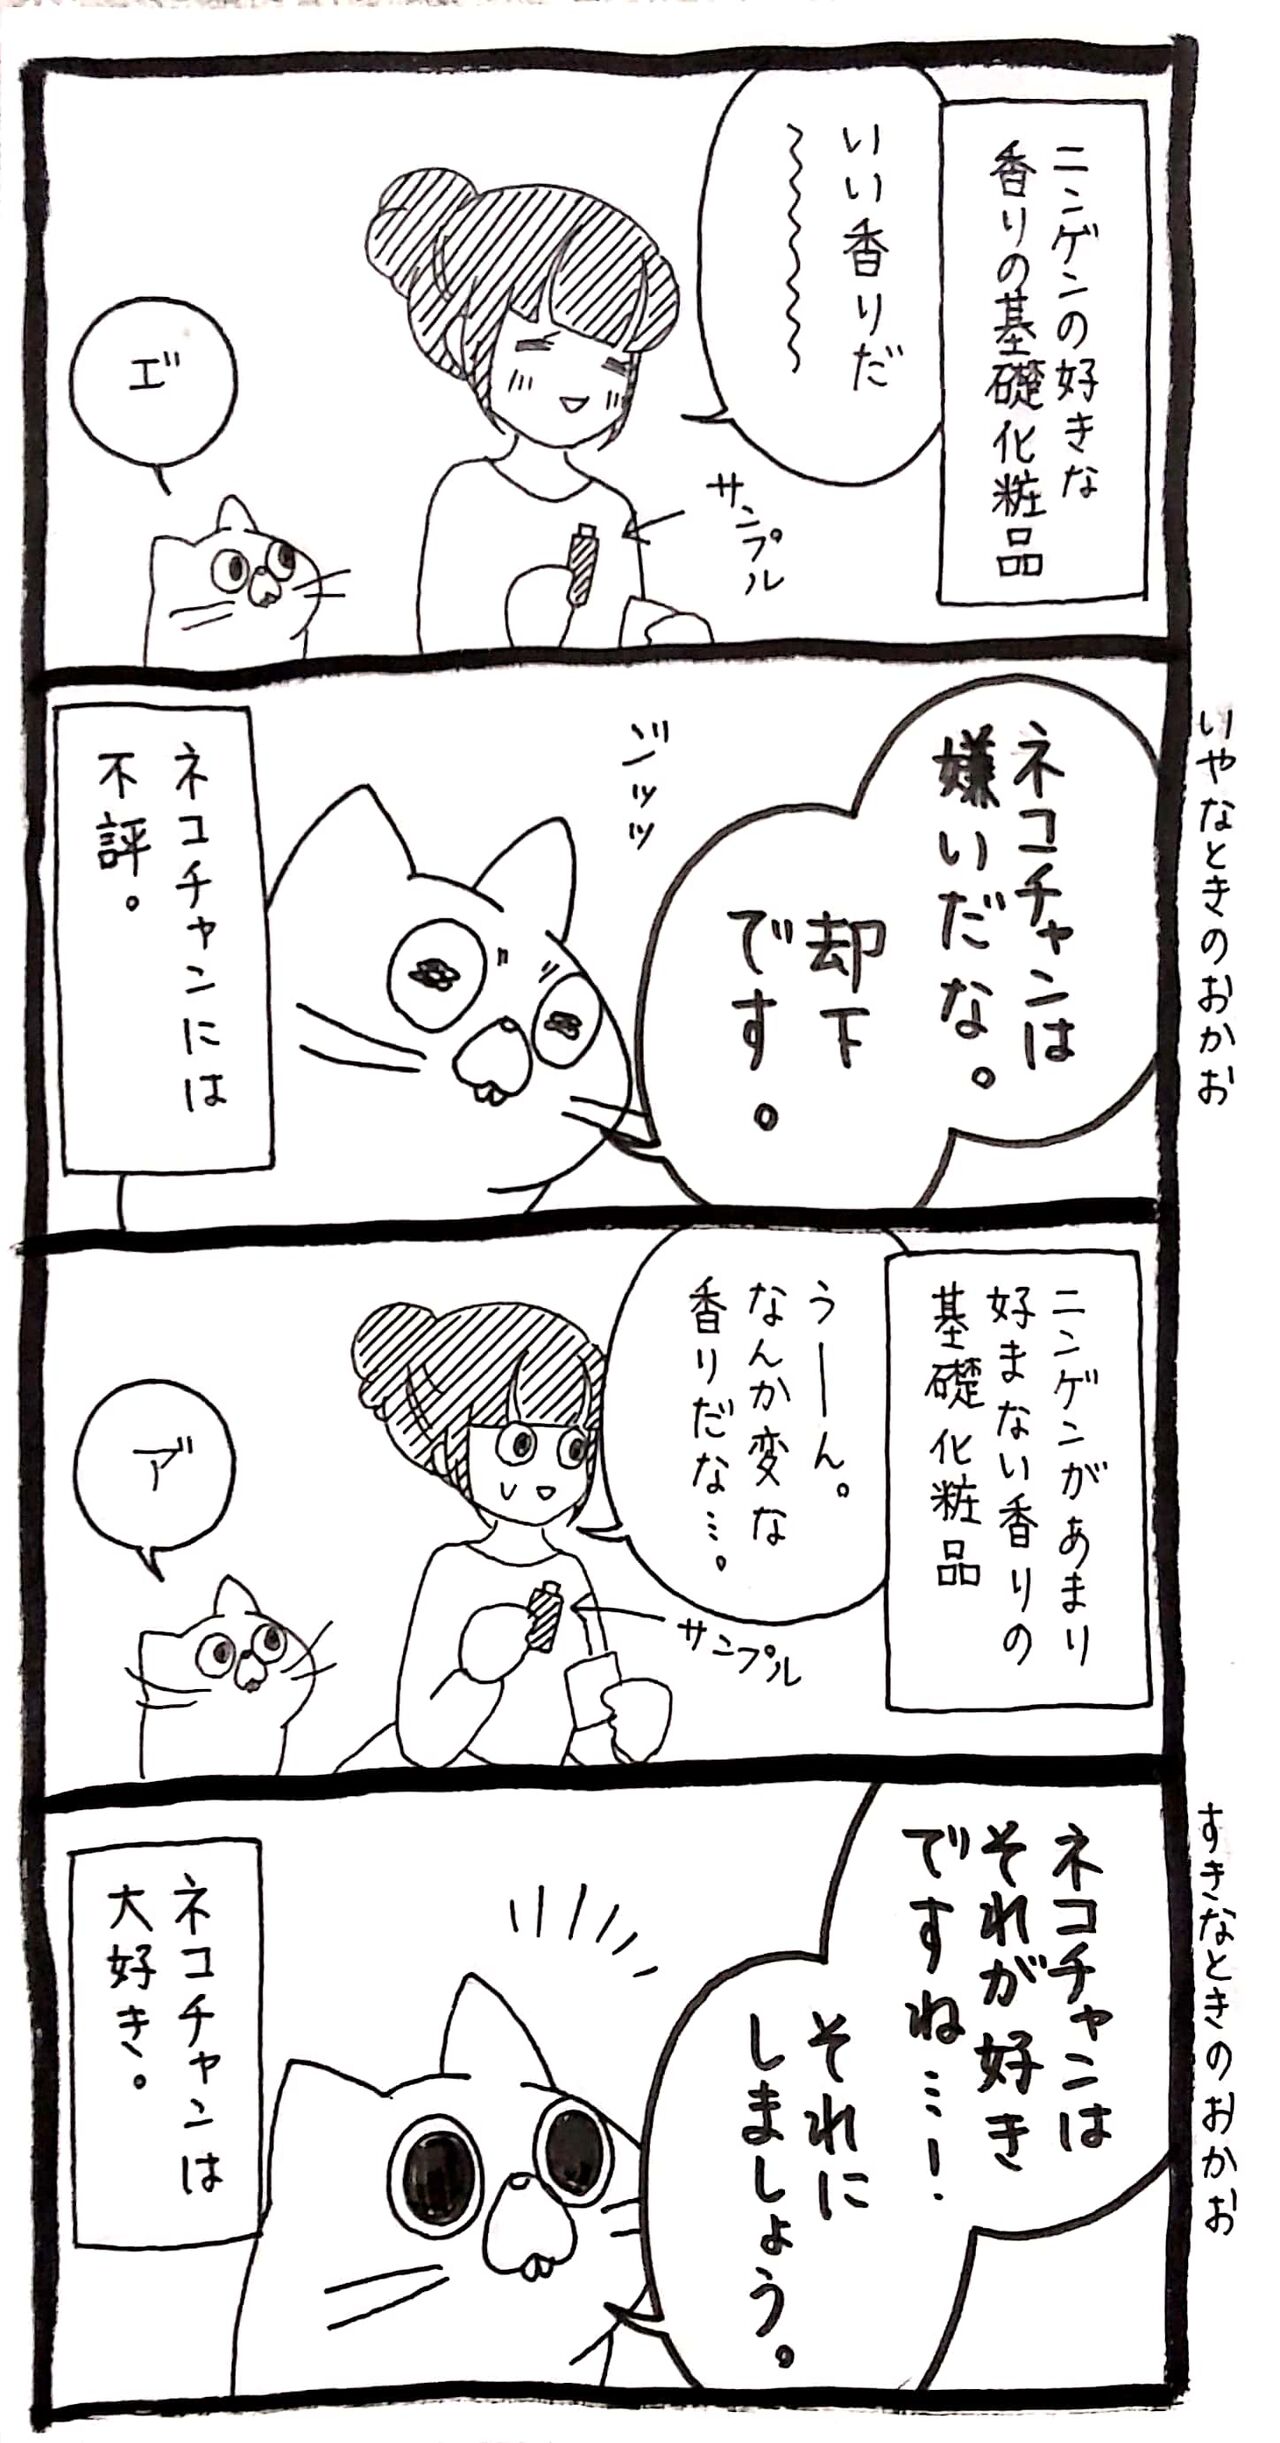 ニンゲンの好きな
香りの基礎化粧品
いい香りだ
〜〜〜〜
サンプル
エ゛
いやなときのおかお
ネコチャンは
嫌いだな。
却下
です。
ジッッ
ネコチャンには
不評。
ニンゲンがあまり
好まない香りの
基礎化粧品
うーーん。
なんか変な
香りだな…。
サンプル
ア゛
すきなときのおかお
ネコチャンは
それが好き
ですね…！
それに
しましょう。
ネコチャンは
大好き。